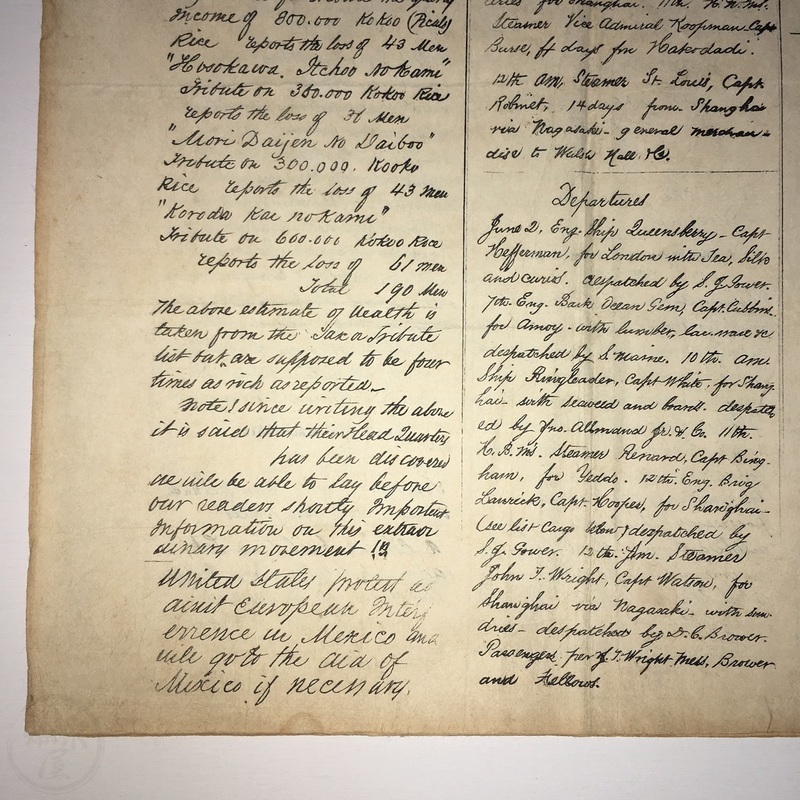 Income of 800.000 Kokoo (Peals)
Rice reports the loss of 43 Men
"Hosokawa. Itchoo No Kami"
Tribute on 360.000 Kokoo Rice
reports the loss of 31 Men
"Mori Daijen No Daiboo"
Tribute on 300.000. Kooko
Rice reports the loss of 43 men
"Koroda Kae no Kami"
Tribute on 600.000 Kokoo Rice
reports the loss of 61 men
Total 190 Men
The above estimate of Wealth is
taken from the Tax or Tribute
list but are supposed to be four
times as rich as reported_
Note! since writing the above
it is said that their Head Quarters
has been discovered
we will be able to lay before
our readers shortly Important
Information on this extraor
dinary movement !!!
United States protest ag
ainst European Interf
errence in Mexico and
will go to the aid of
Mexico if necessary.
for Shanghai.
Steamer Vice Admiral Koopman Capt
Burse, ft days fm Hakodadi.
12th Am. Steamer St. Louis, Capt.
Robinet, 14 days from Shanghai
via Nagasaki - general merchan-
dise to Walsh Hall & C.
Departures
June 2, Eng. Ship Queensberry - Capt
Hefferman, for London with Tea, Silk
and curis. despatched by S. J. Gower.
7th Eng. Bark Ocean Gem, Capt. Cubbins.
for Amoy - with lumber, &c
despatched by S. Maine. 10th. am.
Ship Ringleader, Capt White, for Shang
hai - with seaweed and despatch
ed by Jno. Allmand Jr. & Co. 11th.
H. B. M's. Steamer Renard, Capt Bing-
ham, for Yeddo. 12th. Eng. Brig
Lanrick, Capt. Hooper, for Shanghai -
(see list Cargo) despatched by
S. J. Gower. 12th. Am. Steamer
John T. Wright, Capt Watson, for
Shanghai via Nagasaki - with sun-
dries - despatched by D. C. Brower.
Passengers per J. T. Wright Mess, Brower
and Fellows.